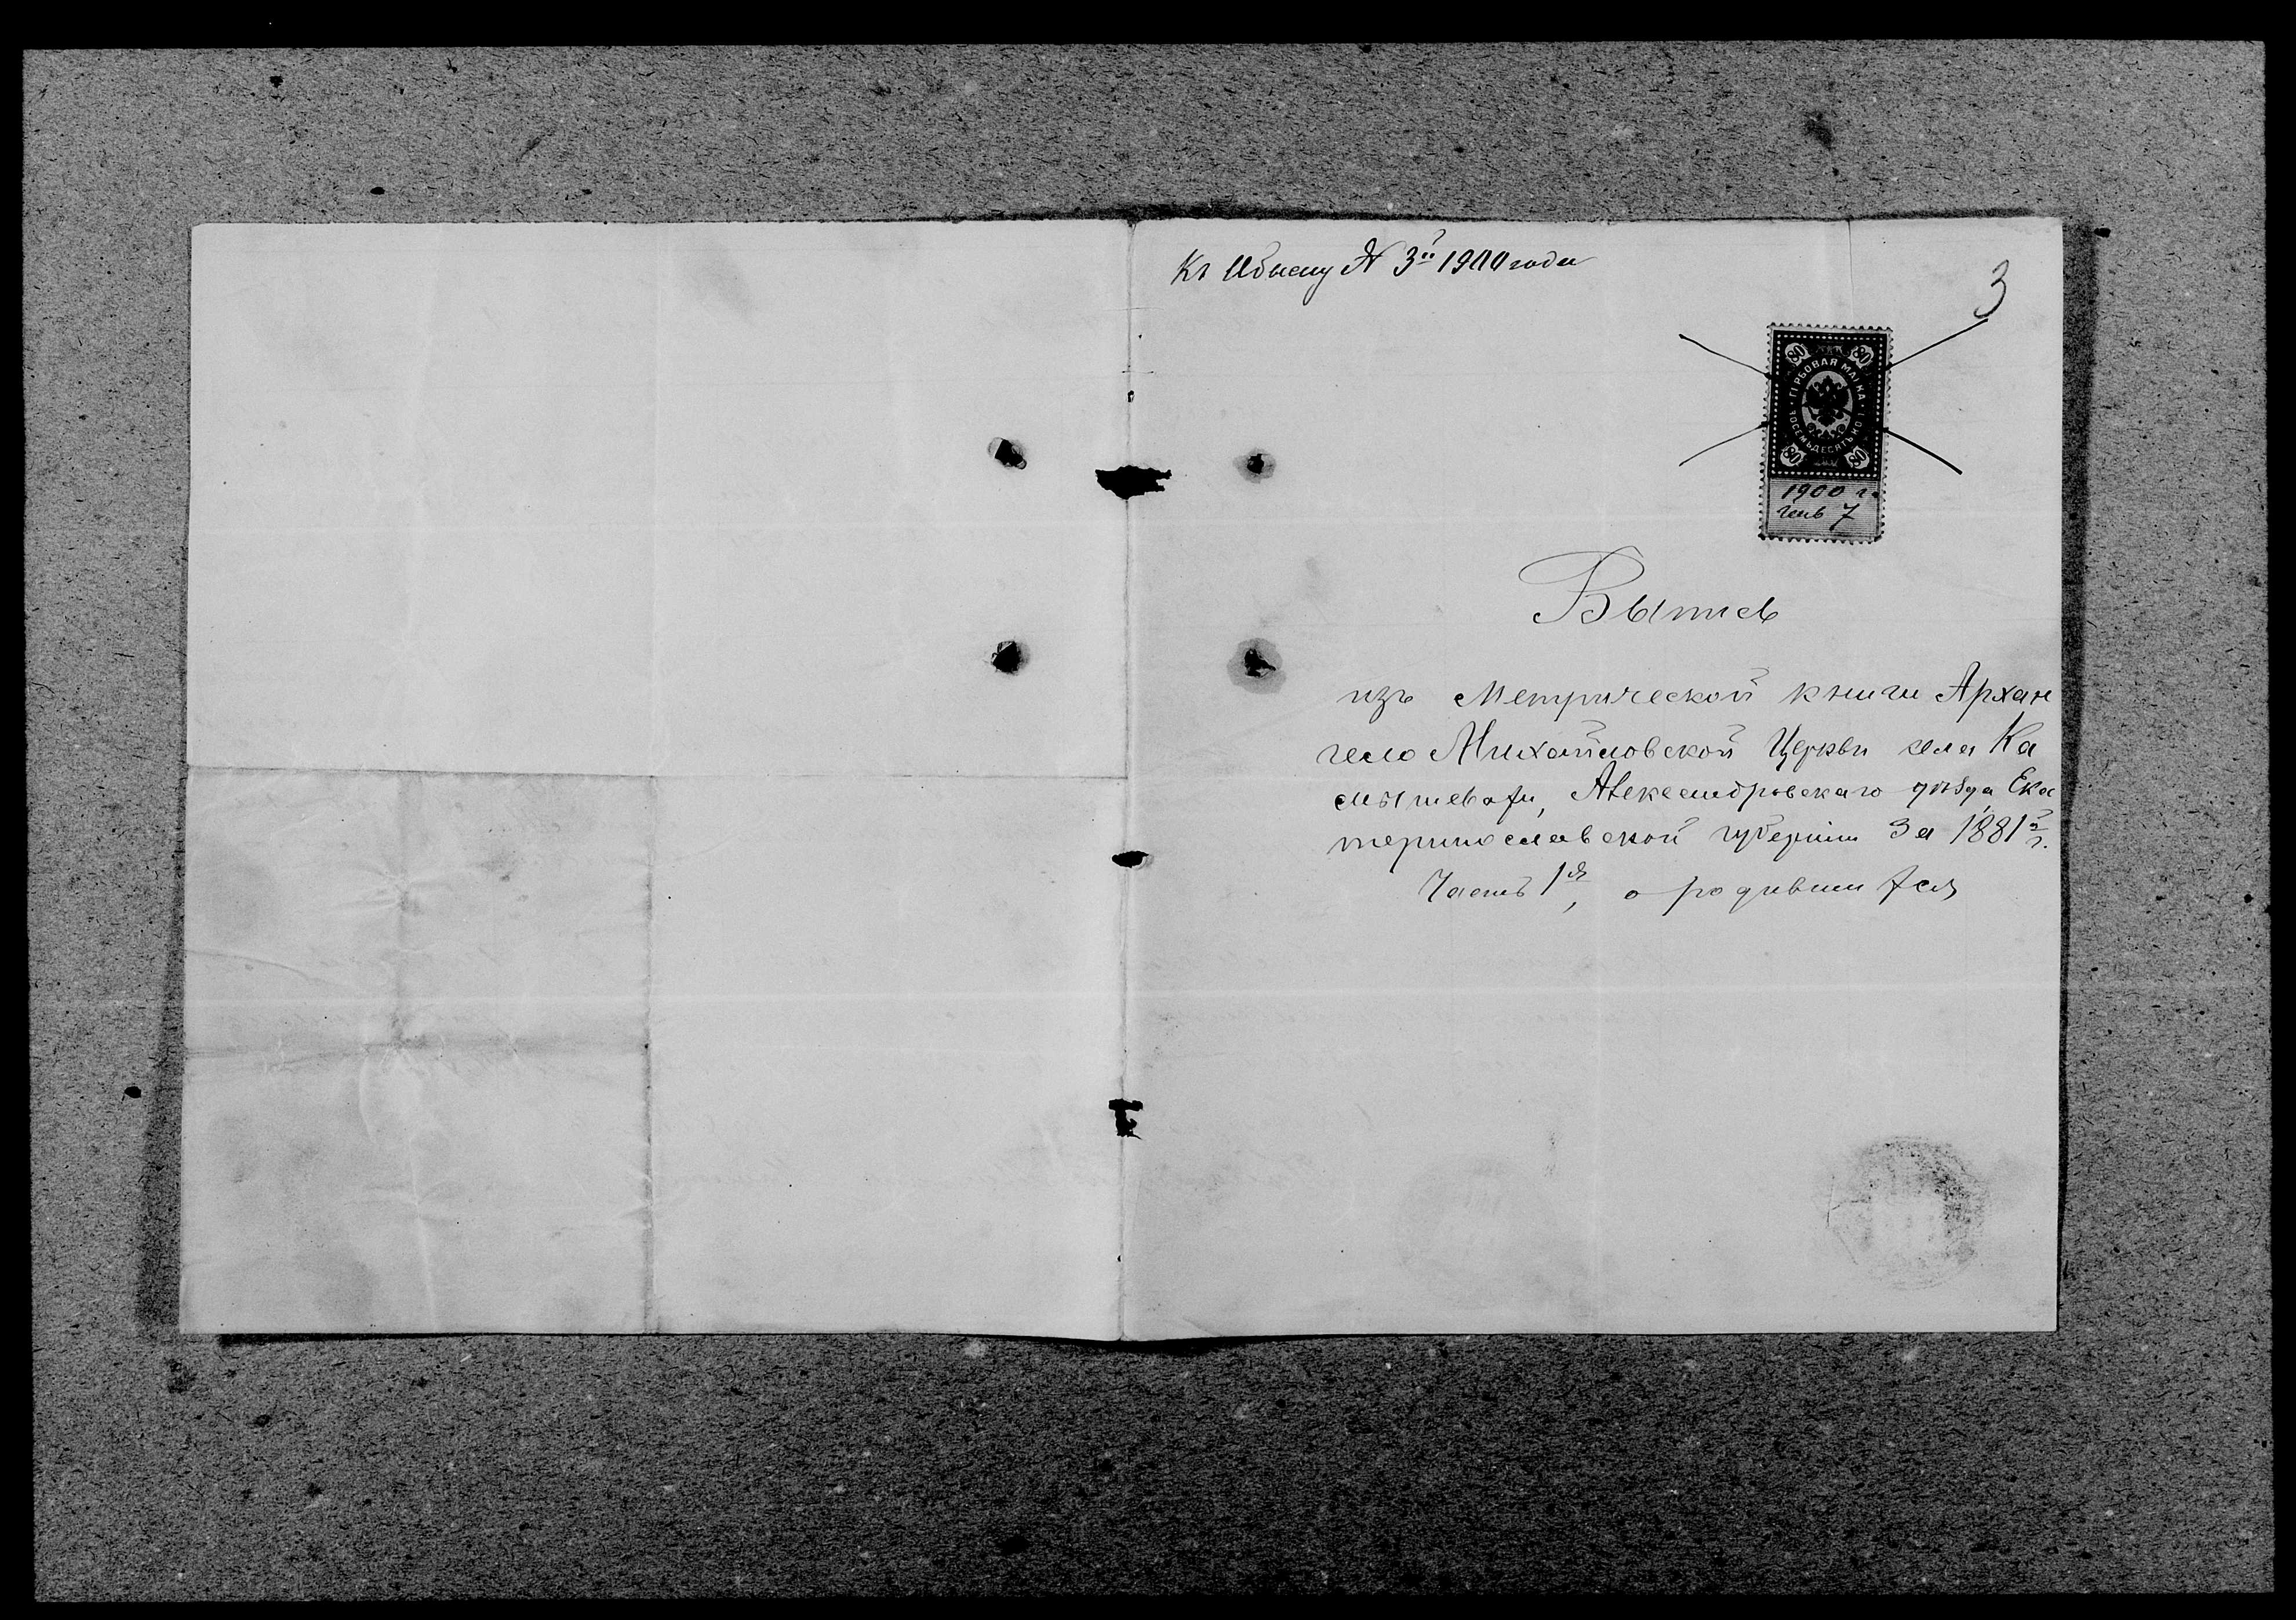 Къ Обыску № 3й 1900 года
3
80 80
ГЕРБОВАЯ МАРКА
ВОСЕМЬДЕСЯТЪ КОП
80 80
1900 г.
7
Выпись
изъ Метрической книги Архан
гело Михайловской Церкви села Ка
мышевахи, Александровскаго уѣзда Ека
теринославской губерніи За 1881й г.
Часть 1я, о родившихся